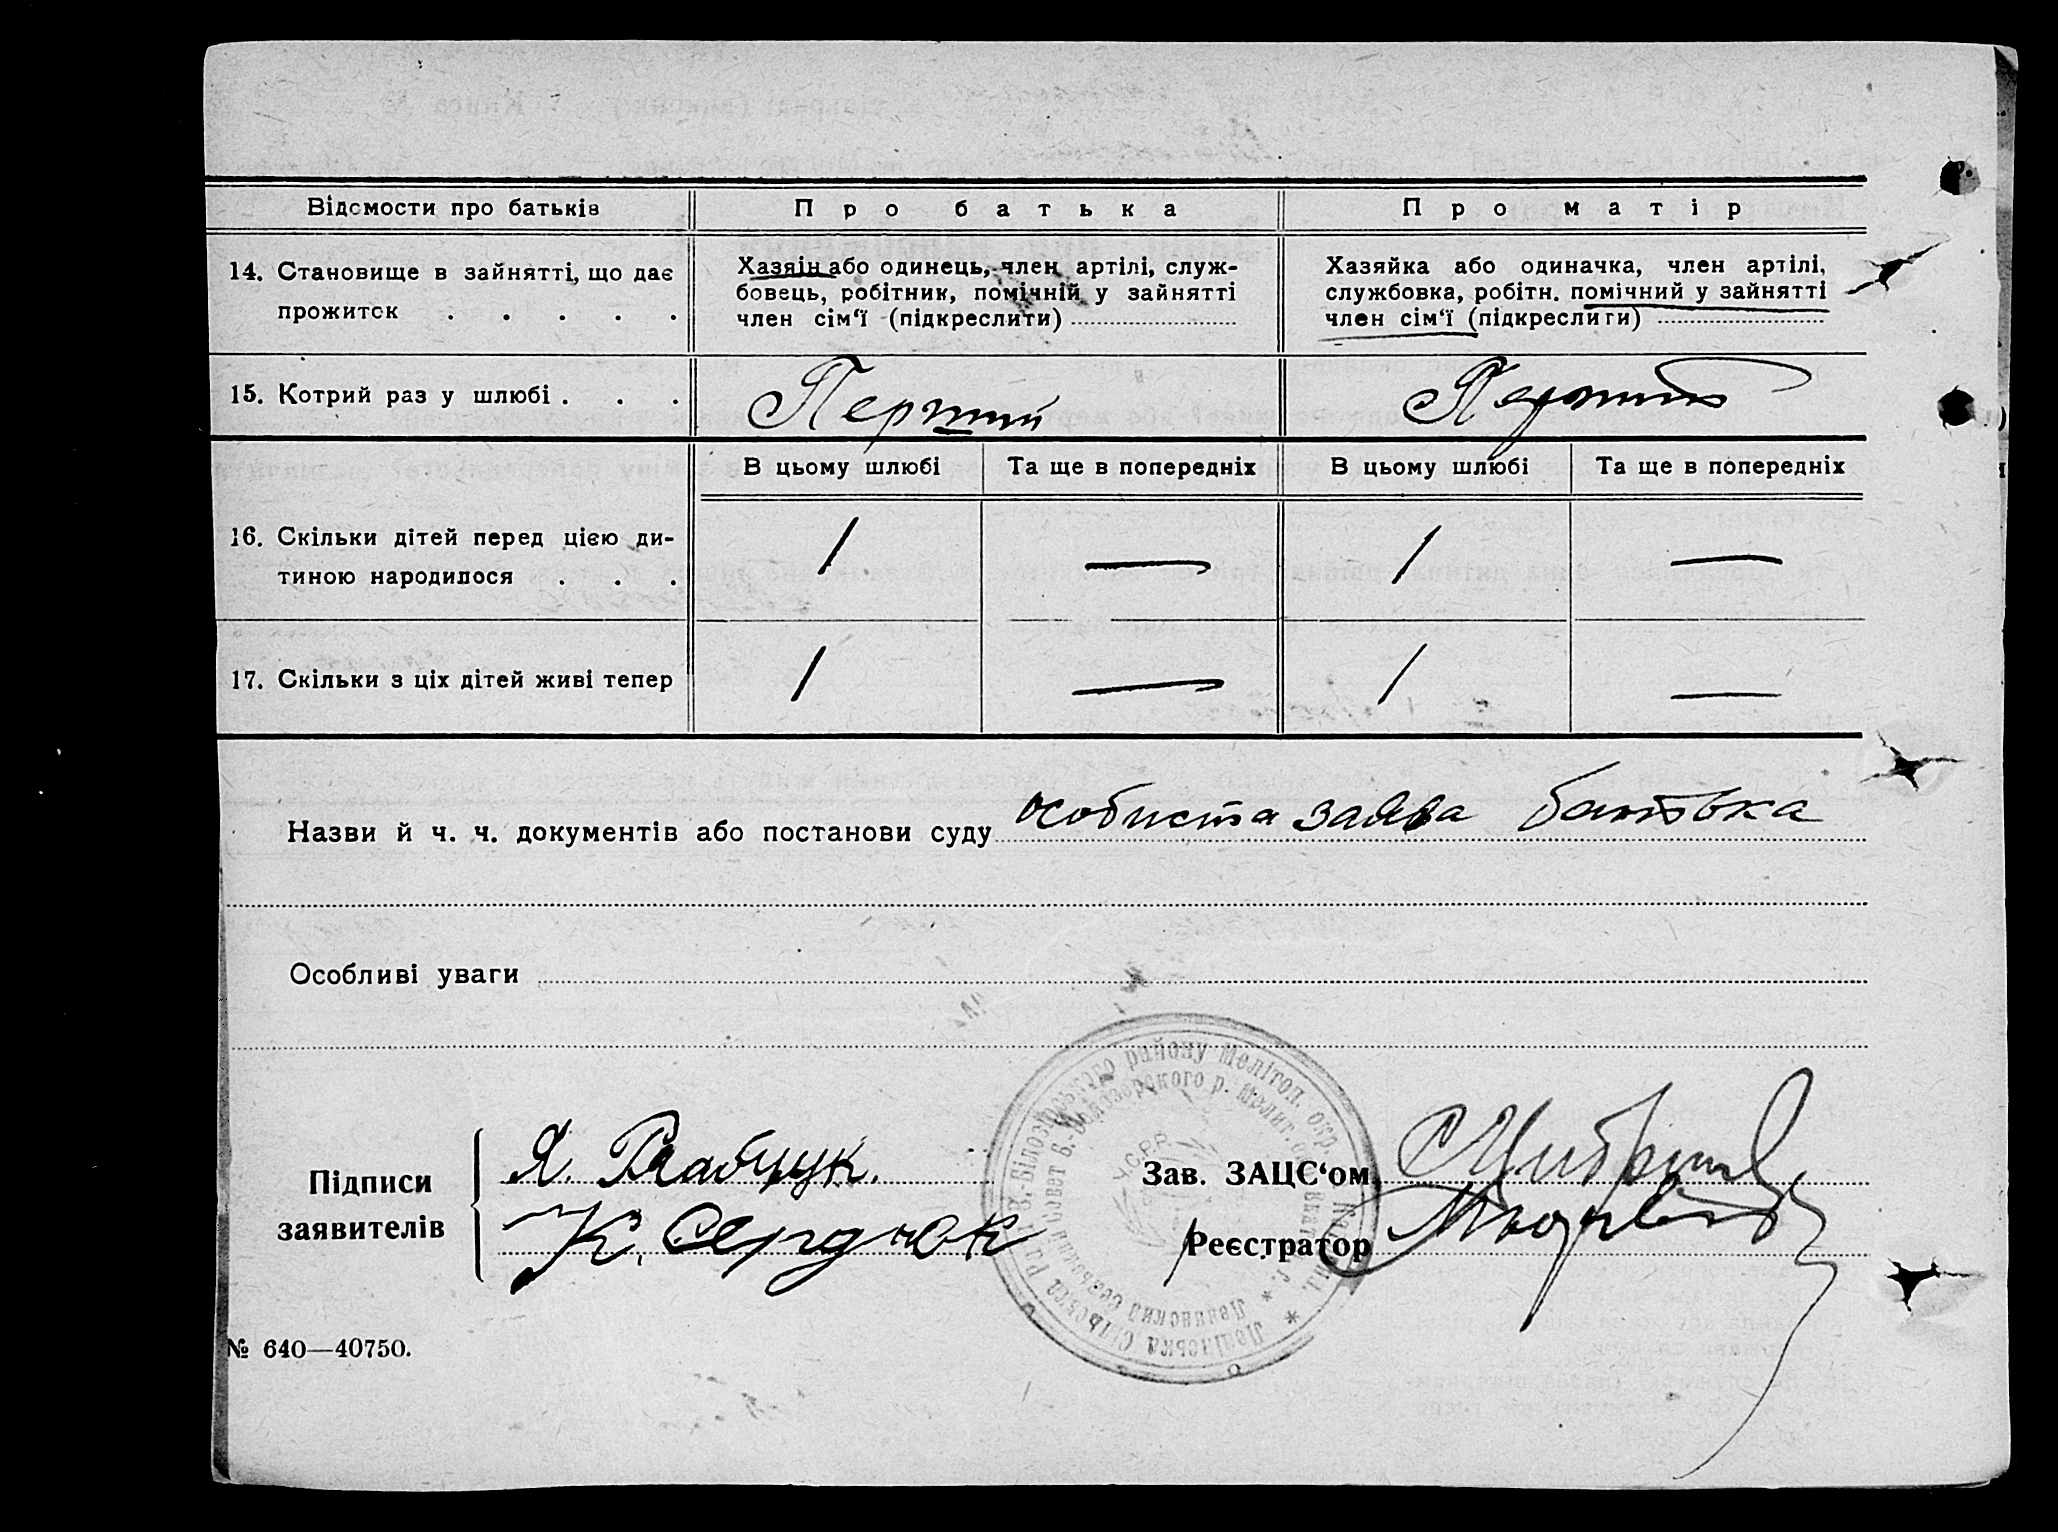 Відомости про батьків
Про батька
Про матір
14. Становище в зайнятті, що дає
прожиток . . . . .
Хазяін або одинець, член артілі, служ-
бовець, робітник, помічній у зайнятті
член сім‘ї (підкреслити)
Хазяйка або одиначка, член артілі,
службовка, робітн. помічний у зайнятті
член сім‘ї (підкреслити)
15. Котрий раз у шлюбі . . .
Перший
Перший
В цьому шлюбі
Та ще в попередніх
В цьому шлюбі
Та ще в попередніх
16. Скільки дітей перед цією ди-
тиною народилося . . .
1 — 1 —
17. Скільки з ціх дітей живі тепер
1 — 1 —
Назви й ч. ч. документів або постанови суду особиста заява батька
Особливі уваги
Підписи
заявителів
Я.
К. Сердюк
Зав. ЗАЦС‘ом
Реєстратор
району Мелітоп. окр.
У.С.Р.Р.
№ 640—40750.